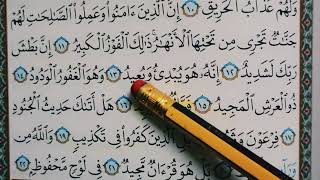 وَلَهُمْ عَذَابُ الْحَرِيقِ ۝١٠ إِنَّ الَّذِينَ ءَامَنُوا وَعَمِلُوا الصَّـٰلِحَـٰتِ لَهُمْ
جَنَّـٰتٌ تَجْرِى مِن تَحْتِهَا الْأَنْهَـٰرُ ذَٰلِكَ الْفَوْزُ الْكَبِيرُ ۝١١ إِنَّ بَطْشَ
رَبِّكَ لَشَدِيدٌ ۝١٢ إِنَّهُۥ هُوَ يُبْدِئُ وَيُعِيدُ ۝١٣ وَهُوَ الْغَفُورُ الْوَدُودُ ۝١٤
ذُو الْعَرْشِ الْمَجِيدُ ۝١٥ هَلْ أَتَىٰكَ حَدِيثُ الْجُنُودِ
۝١٧ فِرْعَوْنَ كَفَرُوا فِى تَكْذِيبٍ ۝١٩ وَاللَّهُ مِن
هُوَ قُرْءَانٌ مَّجِيدٌ ۝٢١ فِى لَوْحٍ مَّحْفُوظٍ ۝٢٢